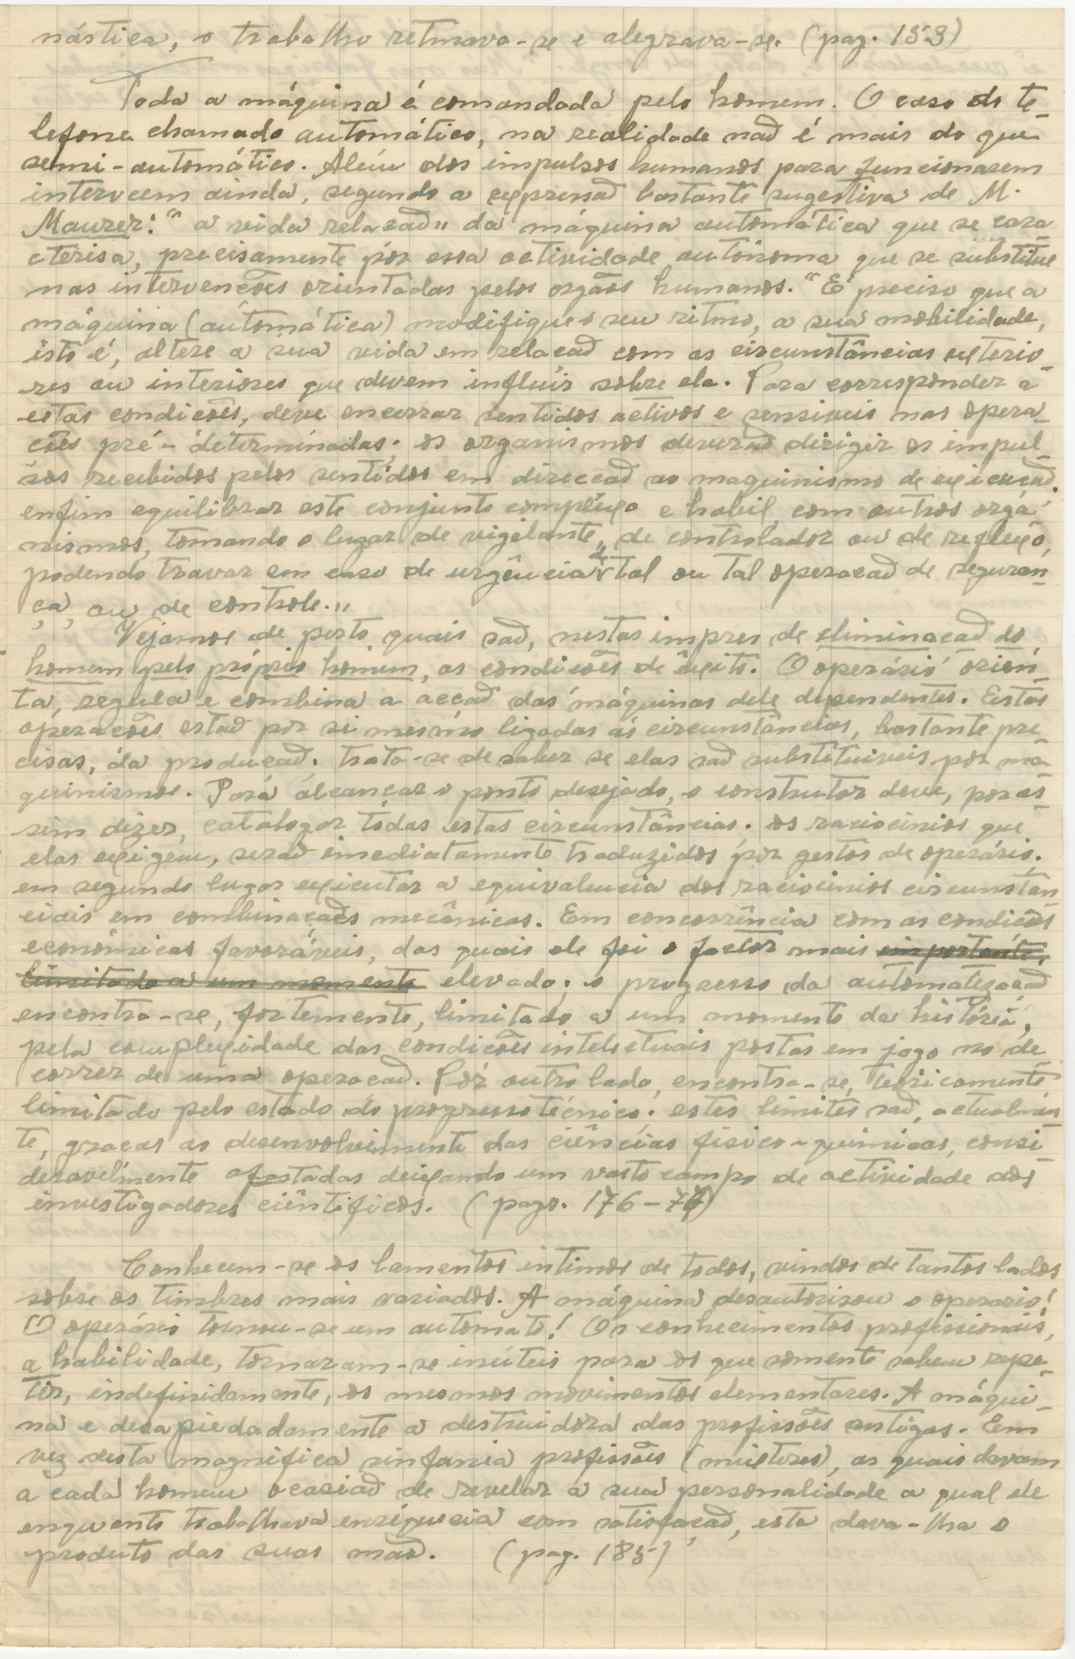 nástica, o trabalho retmava-se e alegrava-se. (pag. 153)
Toda a máquina é comandada pelo homem. O caso do te-
lefone chamado automático, na realidade naõ é mais do que
semi-automático. Além dos impulsos humanos para funcionarem
interveem ainda, segundo a expresaõ bastante sugestiva de M.
Maurer: "a vida relacaõ" da máquina automática que se cara
cterisa, precisamente pór essa actividade autónoma que se substitue
nas intervencões orientadas pelos orgãos humanos. "É preciso que a
máquina (automática) modifique o seu ritmo, a sua mobilidade,
isto é, altere a sua vida em relacaõ com as circunstâncias exterio-
res ou interiores que devem influir sobre ela. Para corresponder a
estas condicões, deve encerrar sentidos activos e sensiveis nas opera-
cões pré-determinadas; os organismos deveraõ dirigir os impul-
sos recebidos pelos sentidos em direccaõ ao maquinismo de execucaõ.
enfim equilibrar este conjunto complexo e habil com outros orgá
nismos, tomando o lugar de vigilante, de controlador ou de reflexo,
podendo travar em caso de urgência tal ou tal operacaõ de seguran-
ça, ou de controle."
Vejamos de perto quais saõ, nestas impres de eliminacaõ do
homem pelo próprio homem, as condicões de êxito. O operário orien
ta, regula e combina a accaõ das máquinas dele dependentes. Estas
operacões estaõ por si mesmas ligadas ás circunstâncias, bastante pre
cisas, da producaõ. trata-se de saber se elas saõ substituiveis por ma-
quinismos. Pará alcançar o ponto desejado, o construtor deve, por as-
sim dizer, catalogar todas estas circunstâncias. os raciocinios que
elas exigem, seraõ imediatamente traduzidos pór gestos de operário.
em segundo lugar executar a equivalencia dos raciocinios circunstan
ciais em combinacões mecânicas. Em concorrência com as condicões
económicas favoráveis, das quais ele foi o factor mais importante,
limitado a um momento elevado; o progresso da automatizacaõ
encontra-se, fortemente, limitado a um momento da história,
pela complexidade das condicões intelectuais postas em jogo no de
correr de uma operacaõ. Pór outro lado, encontra-se, teóricamente
limitado pelo estado do progresso técnico. estes limites saõ, actualmen
te, gracas ao desenvolvimento das ciências fisico-quimicas, consi-
deravelmente afastadas deixando um vasto campo de actividade aos
investigadores ciêntificos. (pags. 176-77)
Conhecem-se os lamentos intimos de todos, vindos de tantos lados
sobre os timbres mais variados. A máquina desautorisou o operario!
O operário tornou-se um automato! Os conhecimentos profissionais,
a habilidade, tornaram-se inúteis para os que somente sabem repe-
tir, indefinidamente, os mesmos movimentos elementares. A máqui-
na e desapiedadamente a destruidora das profissões antigas. Em
vez desta magnifica sinfania profissões (misteres), as quais davam
a cada homem ocasiaõ de revelar a sua personalidade a qual ele
enquento trabalhava enriquecia com satisfacaõ, esta dava-lha o
produto das suas maõs. (pag. 185)